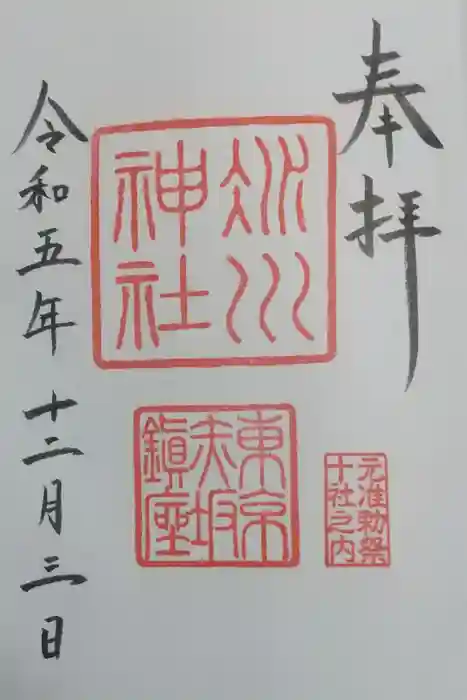 奉拝
氷川
神社
東京
赤坂
鎮座
元准勅祭
十社之内
令和五年 十二月三日